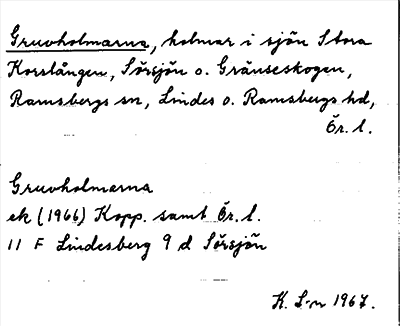 Gruvholmarna, holmar i sjön Stora
Korslången, Sörsjön o. Gränseskogen,
Ramsbergs sn, Lindes o. Ramsbergs hd,
Ör. l.
Gruvholmarna
ek (1966) Kopp. samt Ör. l.
11 F Lindesberg 9 d Sörsjön
K. L-n 1967.